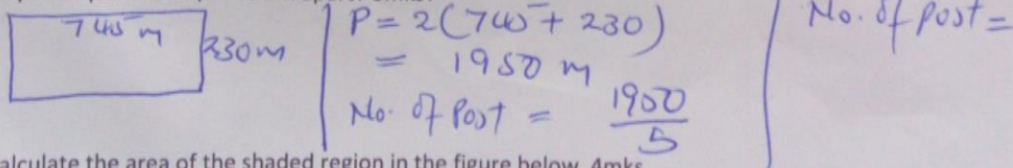 745 m
230m
P = 2(745 + 230)
= 1950 m
No. of Post = 1950/5
No. of post =
alculate the area of the shaded region in the figure below. 4mks